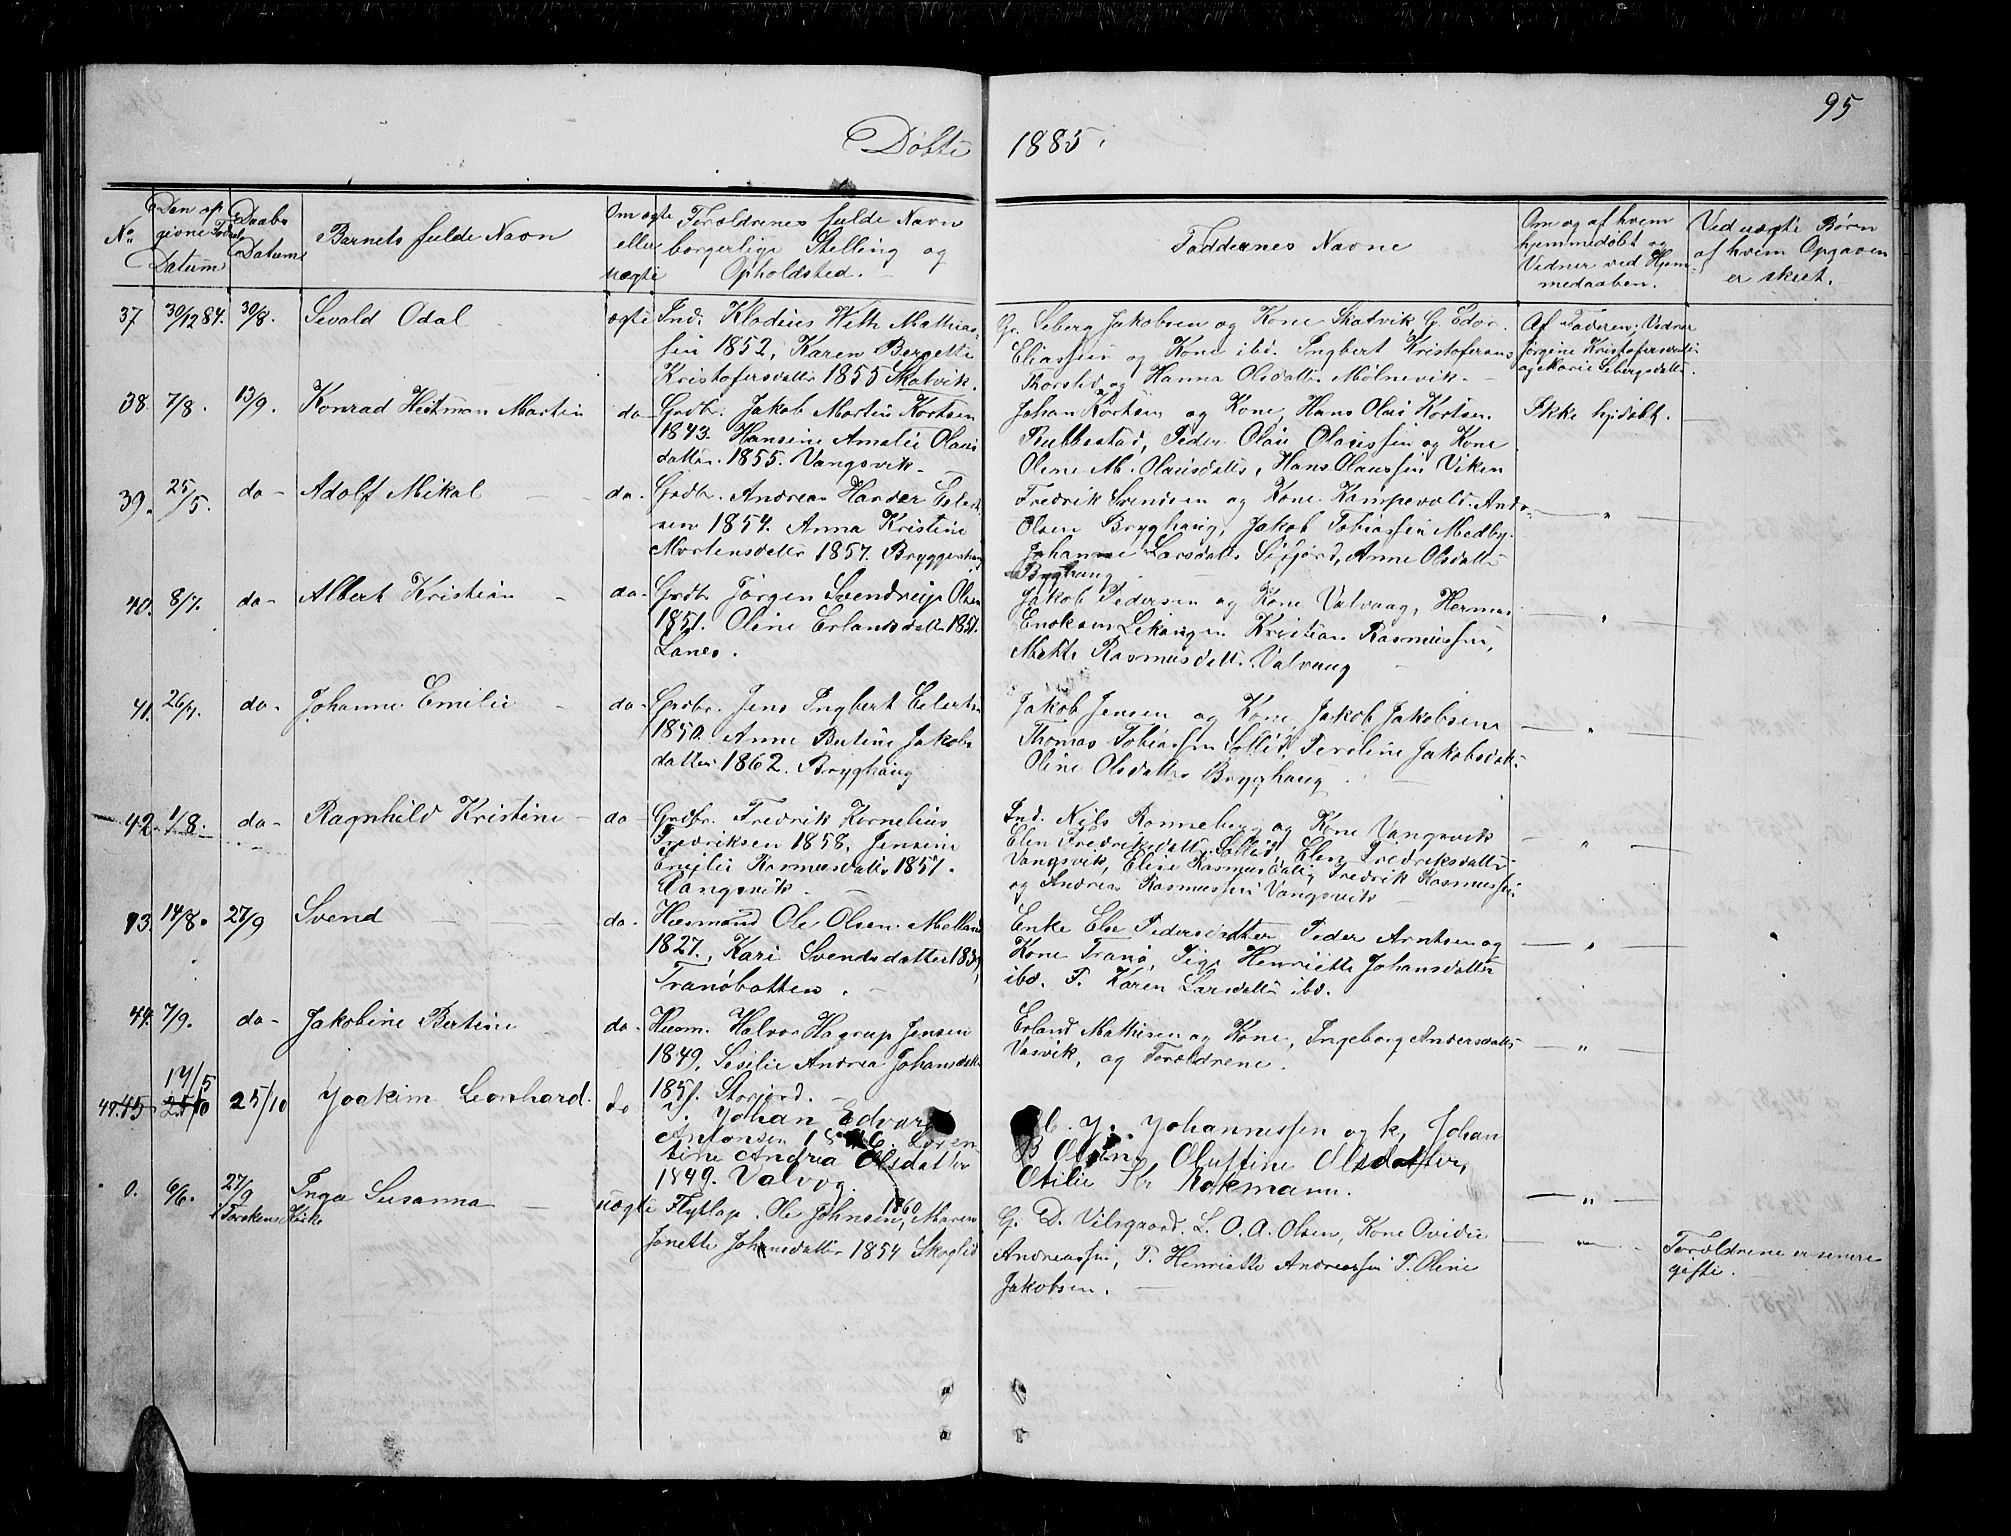 95
Døbte 1885.
No
Den op
givne Fødsel
Datum
Daabs
Datum
Barnets fulde Navn
Om ægte
eller
uægte
Forældrenes fulde Navn
borgerlige Stilling og
Opholdsted.
Faddernes Navne
Om og af hvem
hjemmedøbt og
Vidner ved Hjem
medaaben.
Ved uægte Børn
af hvem Opgaven
er skeet.
37 30/12 84. 30/8. Sevald Odal ægte Ind. Klodius With Mathias
sen 1852, Karen Bergette
Kristofersdatter 1855 Skatvik.
G. Seberg Jakobsen og Kone Skatvik, G. Edor
Eliassen og Kone ibd. Ingbert Kristofersens
Thorsted og Hanna Olsdatter Molnevik.
Af Faderen; Vidner
Jørgine Kristofersdatter
og Marie Sebergsdatter.
38 7/8. 13/9. Konrad Heitman Martin do Grdbr. Jakob Martin Kortsen
1843. Hansine Amalie Olaus
datter. 1855. Vangsvik.
Johan Kortsen og Kone, Hans Olai Kortsen.
Rubbestad, Peder Olai Olaussen og Kone
Oline M. Olausdatter, Hans Olaussen Viken
Ikke hjdøbt.
39. 25/5. do Adolf Mikal do. Grdbr. Andreas Harder Eilert
sen 1854. Anna Kristine
Mortensdatter 1857. Bryggerhaug
Fredrik Svendsen og Kone Kampevold. Ando
Olsen Bryghaug, Jakob Tobiassen Medby.
Johanne Larsdatter Sifjord, Anne Olsdatter
Bryghaug
"
40. 8/7. do Albert Kristian do Grdbr Jørgen Svendreip Olsen
1851. Oline Erlandsdatter 1851.
Lanes.
Jakob Pedersen og Kone Valvaag, Herman
Enoksen Lekangen Kristian Rasmussen,
Mette Rasmusdatt. Valvaag
"
41. 26/7. do Johanne Emilie do Grdbr. Jens Ingbert Eilertsen
1850. Anne Bertine Jakobs
datter 1862. Bryghaug
Jakob Jensen og Kone, Jakob Jakobsens
Thomas Tobiassen Sollid, Peroline Jakobsdatt.
Oline Olsdatter Bryghaug
"
42. 1/8. do Ragnhild Kristine do Grdbr. Fredrik Kornelius
Fredriksen 1858, Jensine
Emilie Rasmusdatter 1857.
Vangsvik.
Ind. Nils Ronneberg og Kone Vangsvik
Elen Fredriksdatt. Sollid, Elen Fredriksdatter
Vangsvik, Eline Rasmusdatter, Fredrik Rasmussen
og Andreas Rasmussen Vangsvik
"
43. 14/8. 27/9 Svend do. Husmand Ole Olsen Melland
1827, Kari Svendsdatter 1839,
Tranøbotten.
Enke Else Pedersdatter Peder Arntsen og
Kone Tranø, Pige Henriette Johansdatter
ibd. P. Karen Larsdatter ibd.
"
44. 7/9. do Jakobine Bertine do. Husm. Halvor Hagrup Jensen
1849, Sesilie Andrea Johansdatter
1851. Storjord.
Erland Mathisen og Kone, Ingeborg Andersdatter
Vasvik, og Forældrene.
"
45 17/5
25/10 25/10 Joakim Leonhard. do Johan Edvard
Antonsen 18 6. Loren
tine Andrea Olsdatter
1849. Valvog.
J. Johannessen og k, Johan
B Olsen, Oluftine Olsdatter,
Otilie Rokmann.
"
0. 6/6. 27/9
i Torskens Kirke Inga Susanna uægte Flytlap Ole Johnsen, 1860 Maren
Janette Johnsdatter 1854 Skoglid
G. D. Vilsgaard. L. O. A. Olsen, Kone Ovidie
Andreassen, P. Henriette Andreassen P. Oline
Jakobsen.
"
Forældrene er senere
gifte.